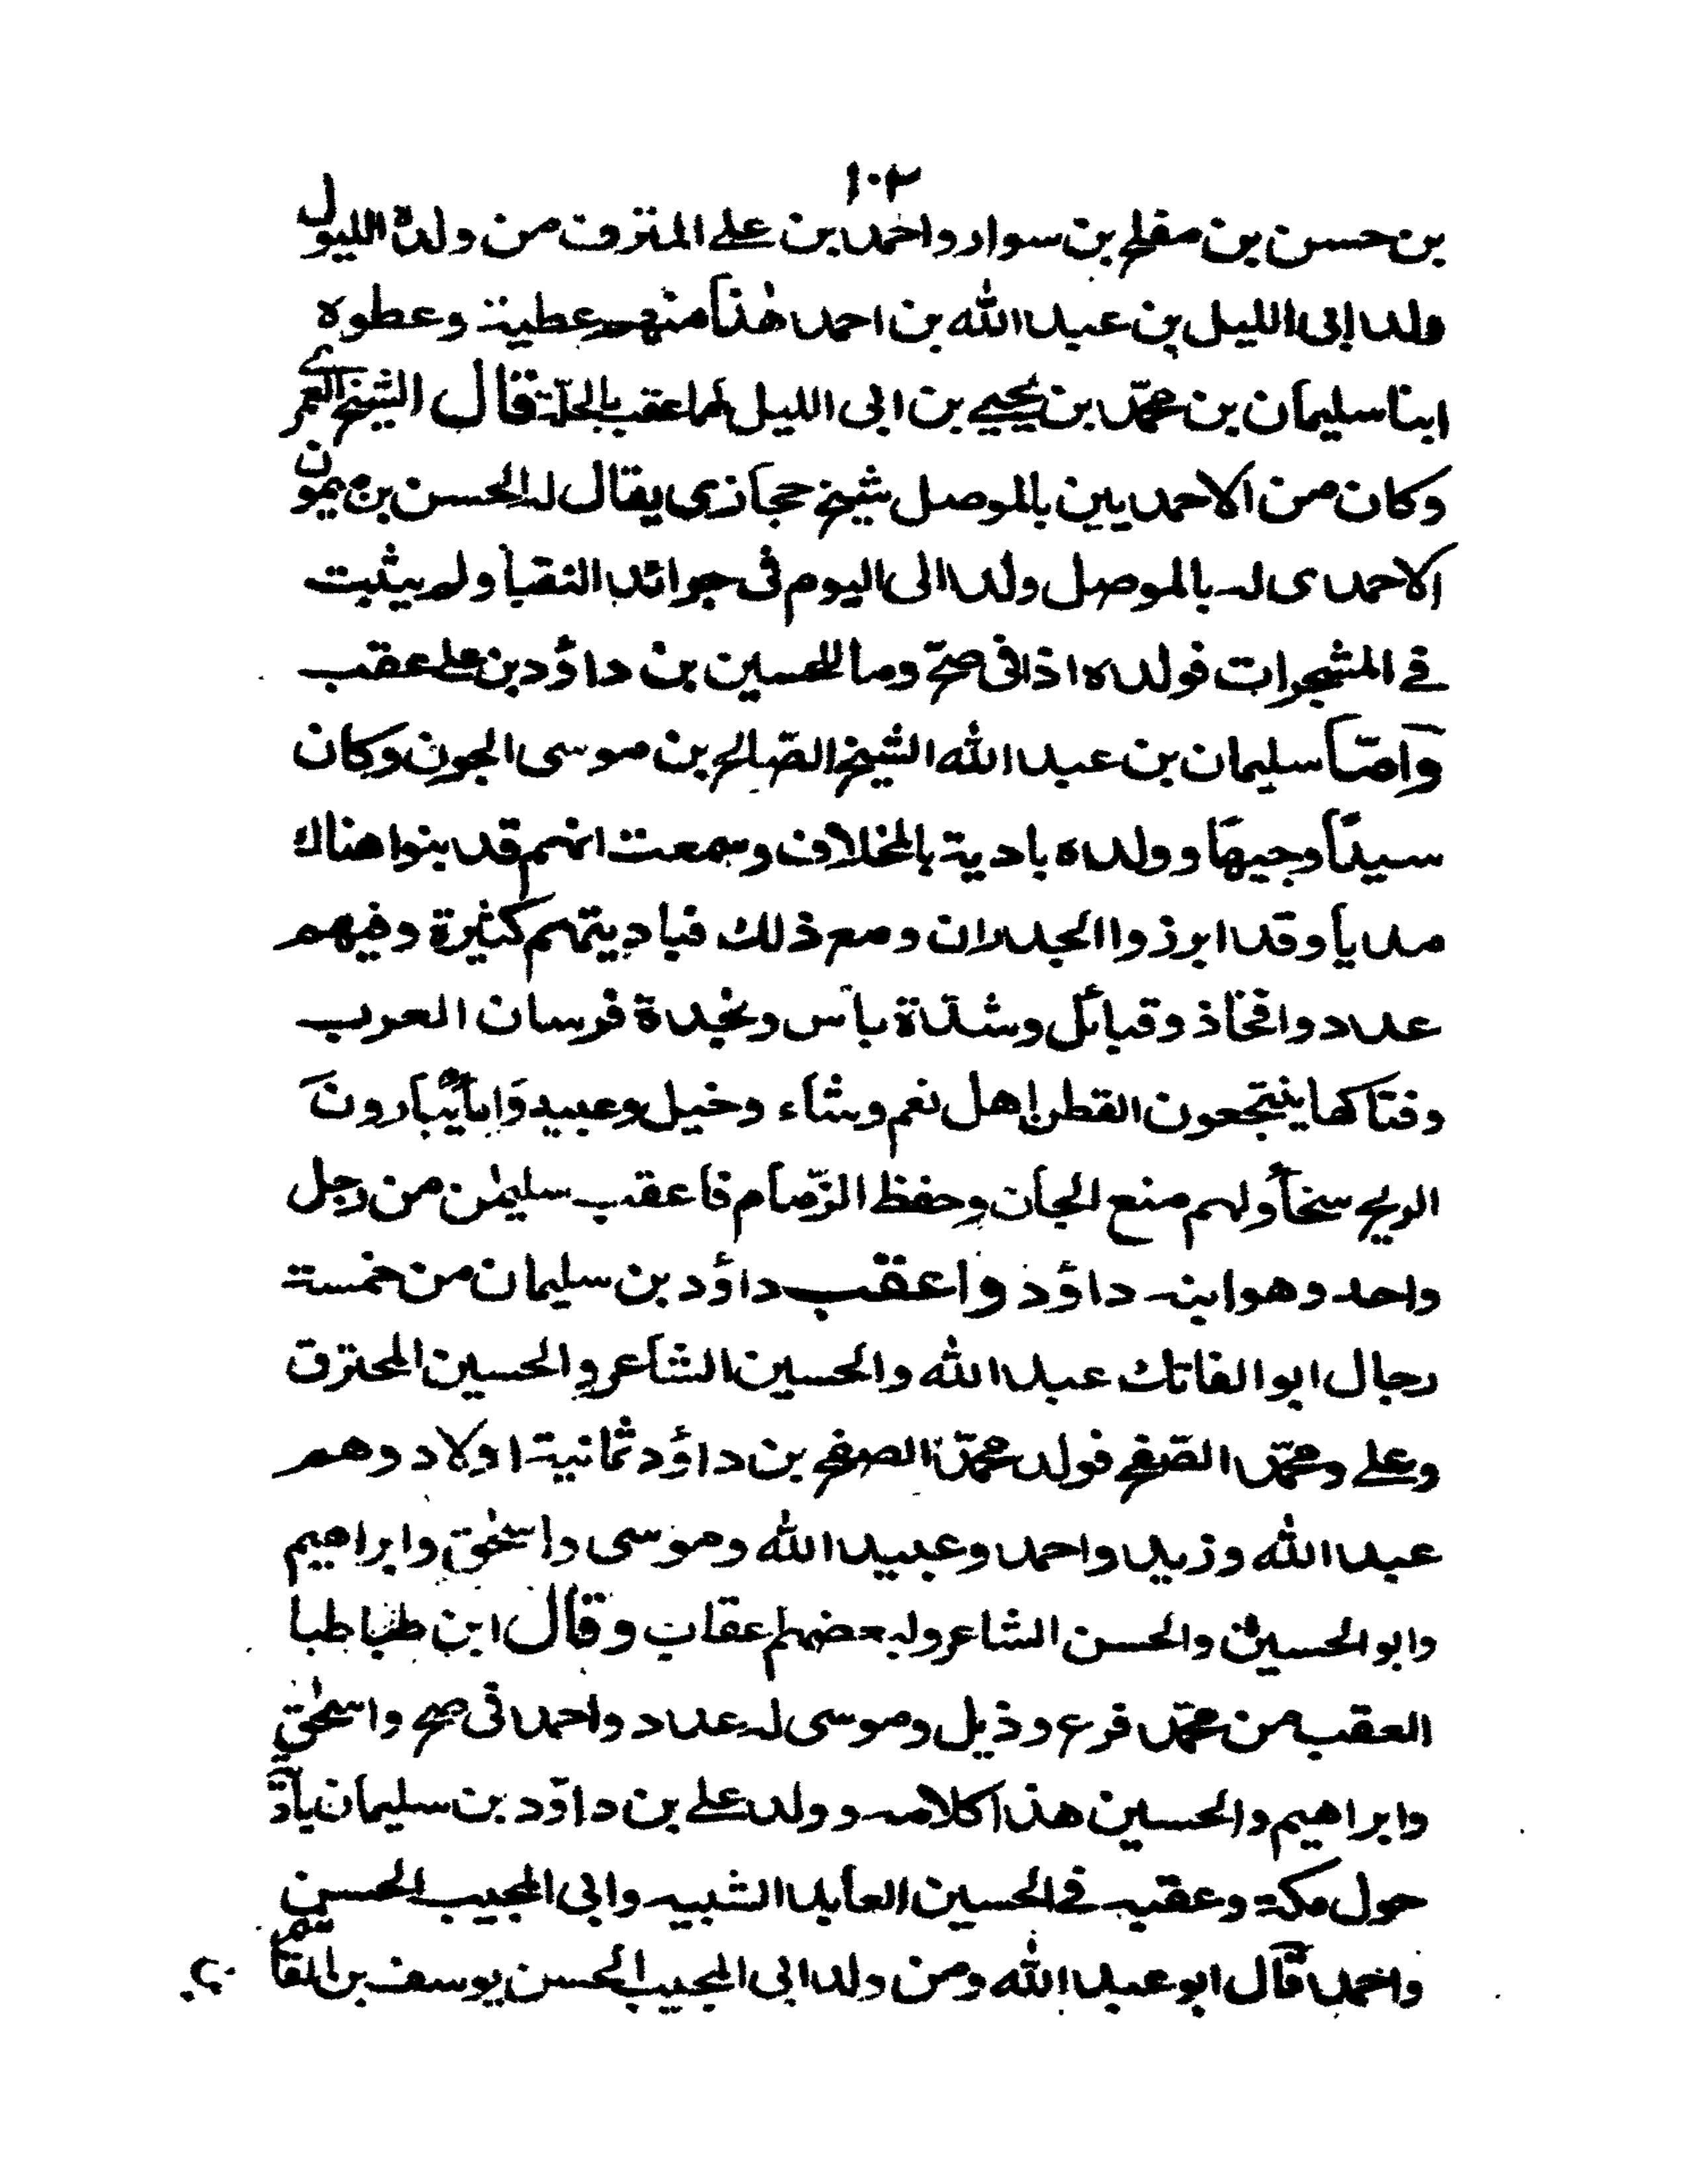 ١٠٣
بن حسن بن مفلح بن سوار واحمد بن علے المترف من ولدہ الليول
ولد ابى الليل بن عبد الله بن احمد هٰذا منهم عطية وعطوة
ابنا سليمان بن محمّد بن يحيے بن ابى الليل لهما عقب بالحلّة قال الشيخ العمرے
وكان من الاحمديين بالموصل شيخ حجازى يقال له الحسن بن ميمون
الاحمدى له بالموصل ولد الى اليوم فى جرائد النقبا ولم يثبت
فے المشجرات فولده اذا فى صحّ وما للحسين بن داؤد بن علے عقب
وَامّا سليمان بن عبد الله الشيخ الصّالح بن موسى الجون وكان
سيدًا وجيهًا وولده بادية بالمخلاف وسمعت انهم قد بنوا هناك
مديا وقد ابرزوا الجدران ومع ذلك فباديتهم كثيرة وفيهم
عدد وافخاذ وقبائل وشدّة باس ونجدة فرسان العرب
وفتاكها ينتجعون القطر اهل نعم وشاء وخيل وعبيد وَاماء يبارونَ
الريح سخاً ولهم منع الجان وحفظ الزّمام فاعقب سليمٰن من رجل
واحد وهو ابنه داؤد واعقب داؤد بن سليمان من خمسة
رجال ابو الفاتك عبد الله والحسين الشاعر والحسين المحترق
وعلے ومحمّد الصّفح فولد محمّد الصفح بن داؤد ثمانية اولاد وهم
عبد الله وزيد واحمد وعبيد الله وموسى واسحٰق وابراهيم
وابو الحسين والحسن الشاعر ولبعضهم اعقاب وقال ابن طباطبا
العقب من محمّد فرع وذيل وموسى له عدد واحمد فى صح واسحٰق
وابراهيم والحسين هذا كلامه وولد علے بن داؤد بن سليمان بادية
حول مكة وعقبه فے الحسين العابد الشبيه وابى المجيب الحسن
واحمد قال ابو عبد الله ومن ولد ابى المجيب الحسن يوسف بن القاسم